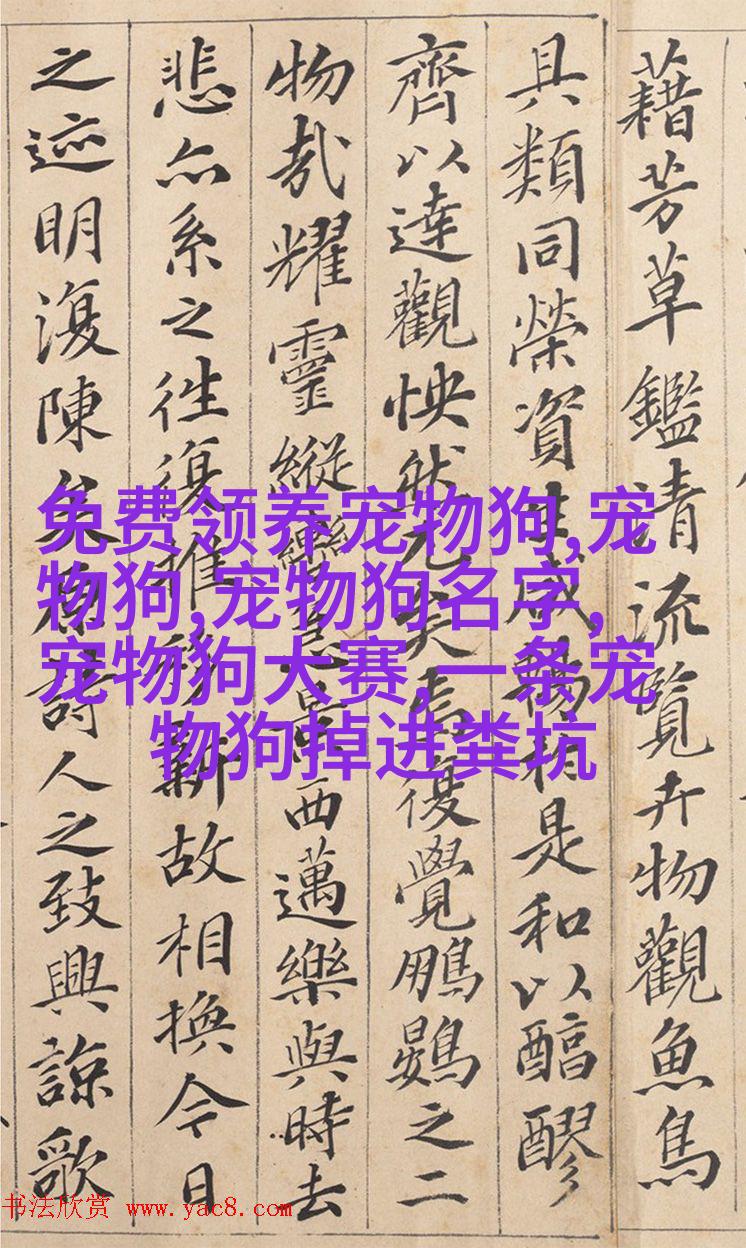 藉芳草鑑清流覽卉物觀魚鳥
具類同榮資生咸暢於是和以醇醪
齊以達觀怏然兀矣焉復覺鵬鷃之二
物哉耀靈縱轡急景西邁樂與時去
悲亦系之往復推移新故相換今日
之迹明復陳矣原詩人之致興諒歌
免费领养宠物狗,宠
物狗,宠物狗名字,
宠物狗大赛,一条宠
物狗掉进粪坑
书法欣赏 www.yac8.com